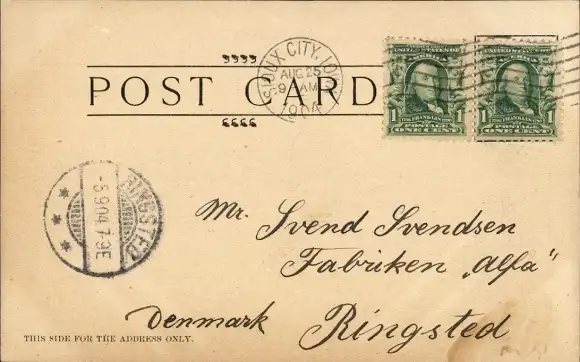 SIOUX CITY, IOWA
AUG 25
9 AM
1904
POST CARD
UNITED STATES OF AMERICA
UNITED STATES OF AMERICA
1 FRANKLIN 1
POSTAGE
ONE CENT
1 FRANKLIN 1
POSTAGE
ONE CENT
RINGSTED
-8.9.04.7-9E
Mr. Svend Svendsen
Fabriken „Alfa“
Denmark Ringsted
THIS SIDE FOR THE ADDRESS ONLY.